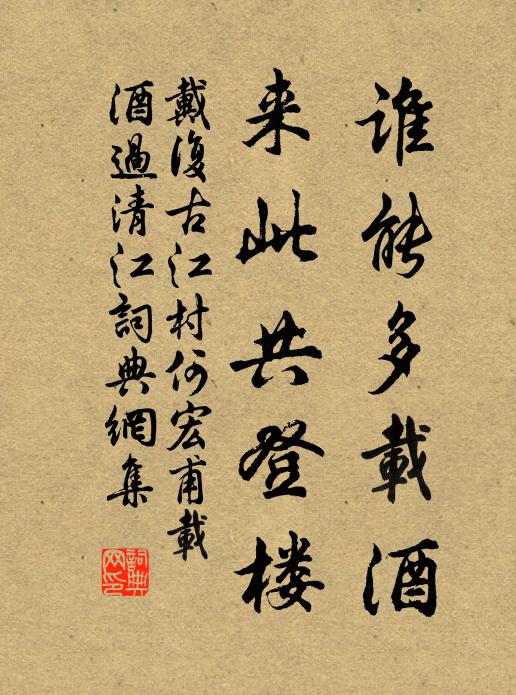 谁能多載酒
来此共登楼
戴復古江村何宏甫載
酒過清江詞典網集
詞典网印